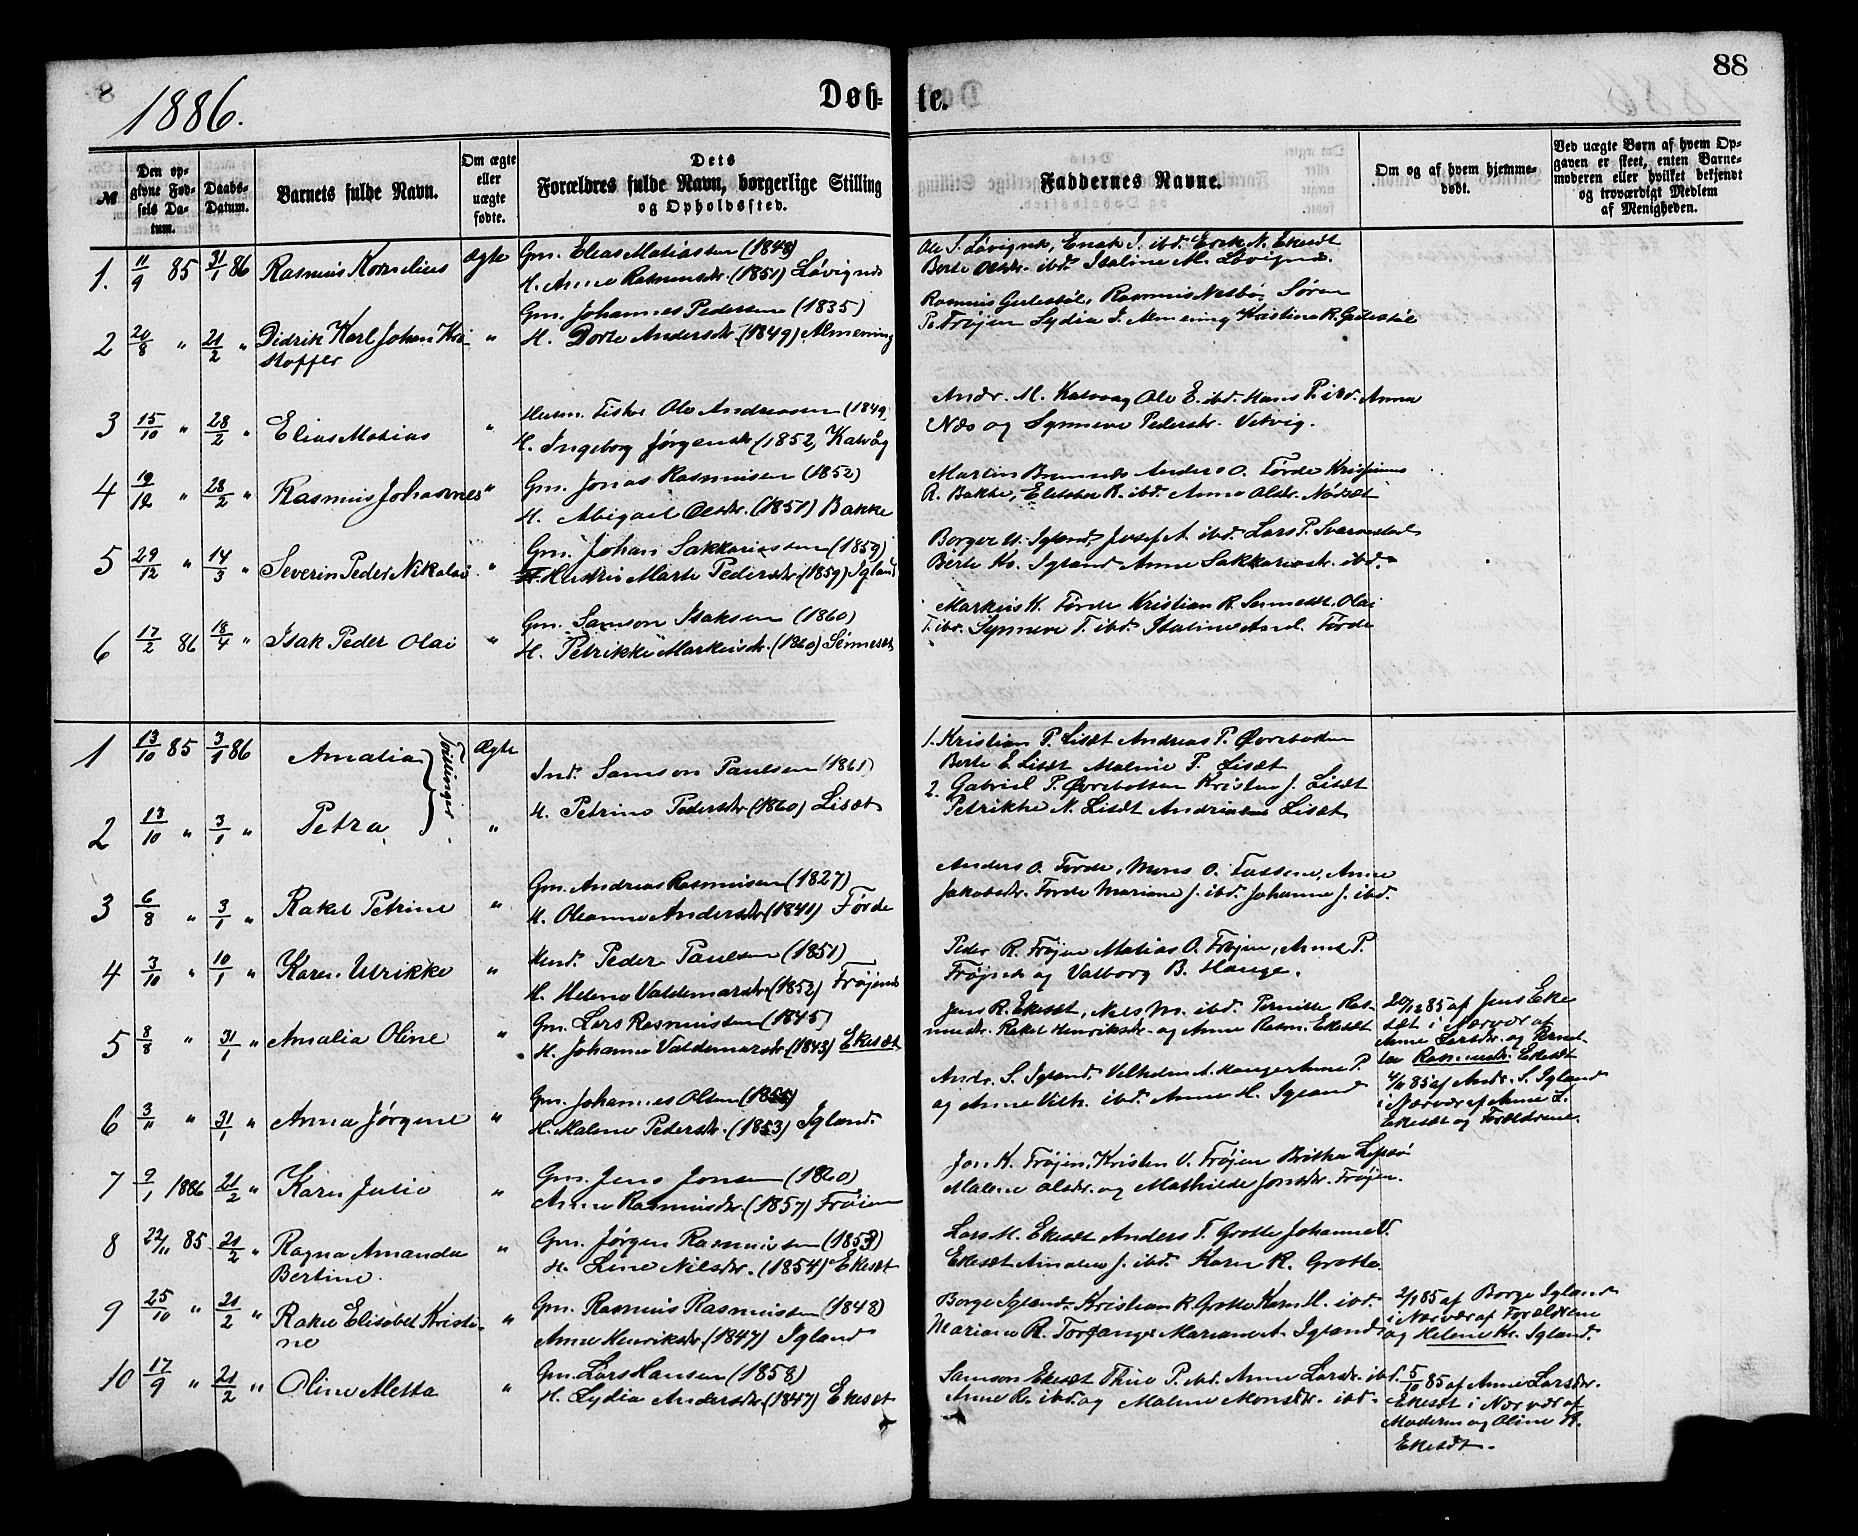 88
1886.
Døb-
te.
№
Den op-
givne Fød-
sels Da-
tum.
Daabs-
Datum.
Barnets fulde Navn.
Om ægte
eller
uægte
fødte.
Dets
Forældres fulde Navn, borgerlige Stilling
og Opholdssted.
Faddernes Navne.
Om og af hvem hjemme-
døbt.
Ved uægte Børn af hvem Op-
gaven er skeet, enten Barne-
moderen eller hvilket bekjendt
og troværdigt Medlem
af Menigheden.
1. 11/9 85 31/1 86 Rasmus Kornelius Ægte Gm. Elias Matiassen (1848)
H. Anne Rasmusdr. (1851) Løvignæs
Ole S. Løvignæs, Enok S. ibd. Erik N. Ekesæt
Berte Olsdr. ibd. Italine M. Løvignæs.
2 20/8 " 21/2 " Didrik Karl Johan Kri-
stoffer
" Gm. Johannes Pedersen (1835)
H. Dorte Andersdr. (1849) Almenning
Rasmus Gulestøl, Rasmus Nesbø, Søren
P. Frøjen Lydia J. Almening Kristine R. Gulestøl
3 15/10 " 28/2 " Elias Matias " Husm. Fisker Ole Andreassen (1849
H. Ingeborg Jørgensdr. (1852, Kalvåg
Andr. M. Kalvaag Ole E. ibd. Hans P. ibd. Anna
Næs og Synneve Pedersdr. Vetvig.
4 19/12 " 28/2 " Rasmus Johannes " Gm. Jonas Rasmusen (1852)
H. Abigael Olsdr. (1851) Bakke
Martin Bremnæs Anders O. Førde Kristiane
R. Bakke, Elisabet R. ibd. Anne Olsdr. Nødset
5 29/12 " 14/3 " Severin Peder Nikolai " Gm. Johan Sakkariassen (1859)
Hustru Marte Pedersdr. (1859) Igland
Borger A. Igland, Josef A. ibd. Lars P. Svarvestad
Berte Kr. Igland Anne Sakkariasdr. ibd.
6 17/2 86 18/4 " Isak Peder Olai " Gm. Samson Isaksen (1860)
H. Petrikke Markusdr. (1860) Sennesæt
Markus K. Førde Kristian R. Sennesæt, Olai
T. ibd. Synneve T. ibd. Italine And. Førde
1 13/10 85 3/1 86 Amalia Ægte
Tvillinger.
Ind. Samson Paulsen (1861)
H. Petrine Pedersdr. (1860) Lisæt
1. Kristian P. Lisæt Andreas P. Øvrebotten
Berte E. Lisæt Malene P. Lisæt
2 13/10 " 3/1 " Petra "
2. Gabriel P. Øvrebotten Kristen J. Lisæt
Petrikke N. Lisæt Andrine Lisæt
3 6/8 " 3/1 " Rakel Petrine " Gm. Andreas Rasmusen (1827)
H. Oleanne Andersdr. (1841) Førde
Anders O. Førde, Mons O. Tassene, Anne
Jakobsdr. Førde Mariane J. ibd. Johanne J. ibd.
4 3/10 " 10/1 " Karen Ulrikke " Peder Paulsen (1851)
H. Helene Valdemarsdr. (1852) Frøjen
Peder R. Frøjen Matias O. Frøjen, Anne P.
Frøjen og Valborg B. Hauge.
5 8/8 " 31/1 " Amalia Oline " Gm. Lars Rasmussen (1845)
H. Johanne Valdemarsdr. (1843) Ekesæt
Jens R. Ekesæt, Nils M. ibd. Pernille Ras-
musdr. Rakel Henriksdr. og Anne Rasm. Ekesæt
20/12 85 af Jens Eke
sæt i Nærvær af
Anne Larsdr. og Pernil-
le Rasmusdr. Ekesæt
6 3/11 " 31/1 " Anna Jørgine " Gm. Johannes Olsen (1855)
H. Malene Pedersdr. (1853) Igland.
Andr. S. Igland, Vilhelm A. Hauge Anne P.
og Anne Vilh. ibd. Anne H. Igland
4/11 85 af Andr. S. Igland
i Nærvær af Anne L.
Ekesæt og Forældrene.
7 9/1 1886 21/2 " Karen Julie " Gm. Jens Jonsen (1860)
Anne Rasmusdr. (1857) Frøien
Jon K. Frøjen, Kristen V. Frøjen Brithe Lepsøi
Malene Olsdr. og Mathilde Jonsdr. Frøjen.
8 22/11 85 21/2 " Ragna Amanda
Bertine.
" Gm. Jørgen Rasmussen (1853)
H. Lene Nilsdr. (1854) Ekesæt
Lars M. Ekesæt Anders T. Grotle Johanne V.
Ekesæt Amalia J. ibd. Karen R. Grotle.
9 25/10 " 21/2 " Rakel Elisabet Kristi-
ne
" Gm. Rasmus Rasmussen (1848)
Anne Henriksdr. (1847) Igland
Børge Igland, Kristian R. Grotle Karen H. ibd.
Mariane R. Torfanger Mariane A. Igland
2/11 85 af Børge Igland
i Nærvær af Forældrene
og Helene Kr. Igland.
10 17/9 " 21/2 " Oline Aletta " Gm. Lars Hansen (1858)
H. Lydia Andersdr. (1847) Ekesæt
Samson Ekesæt Thue P. ibd. Anne Larsdr. ibd.
Anne R. ibd. og Malene Monsdr. ibd.
5/10 85 af Anne Larsdr.
Ekesæt i Nærvær af
Moderen og Oline H.
Ekesæt.